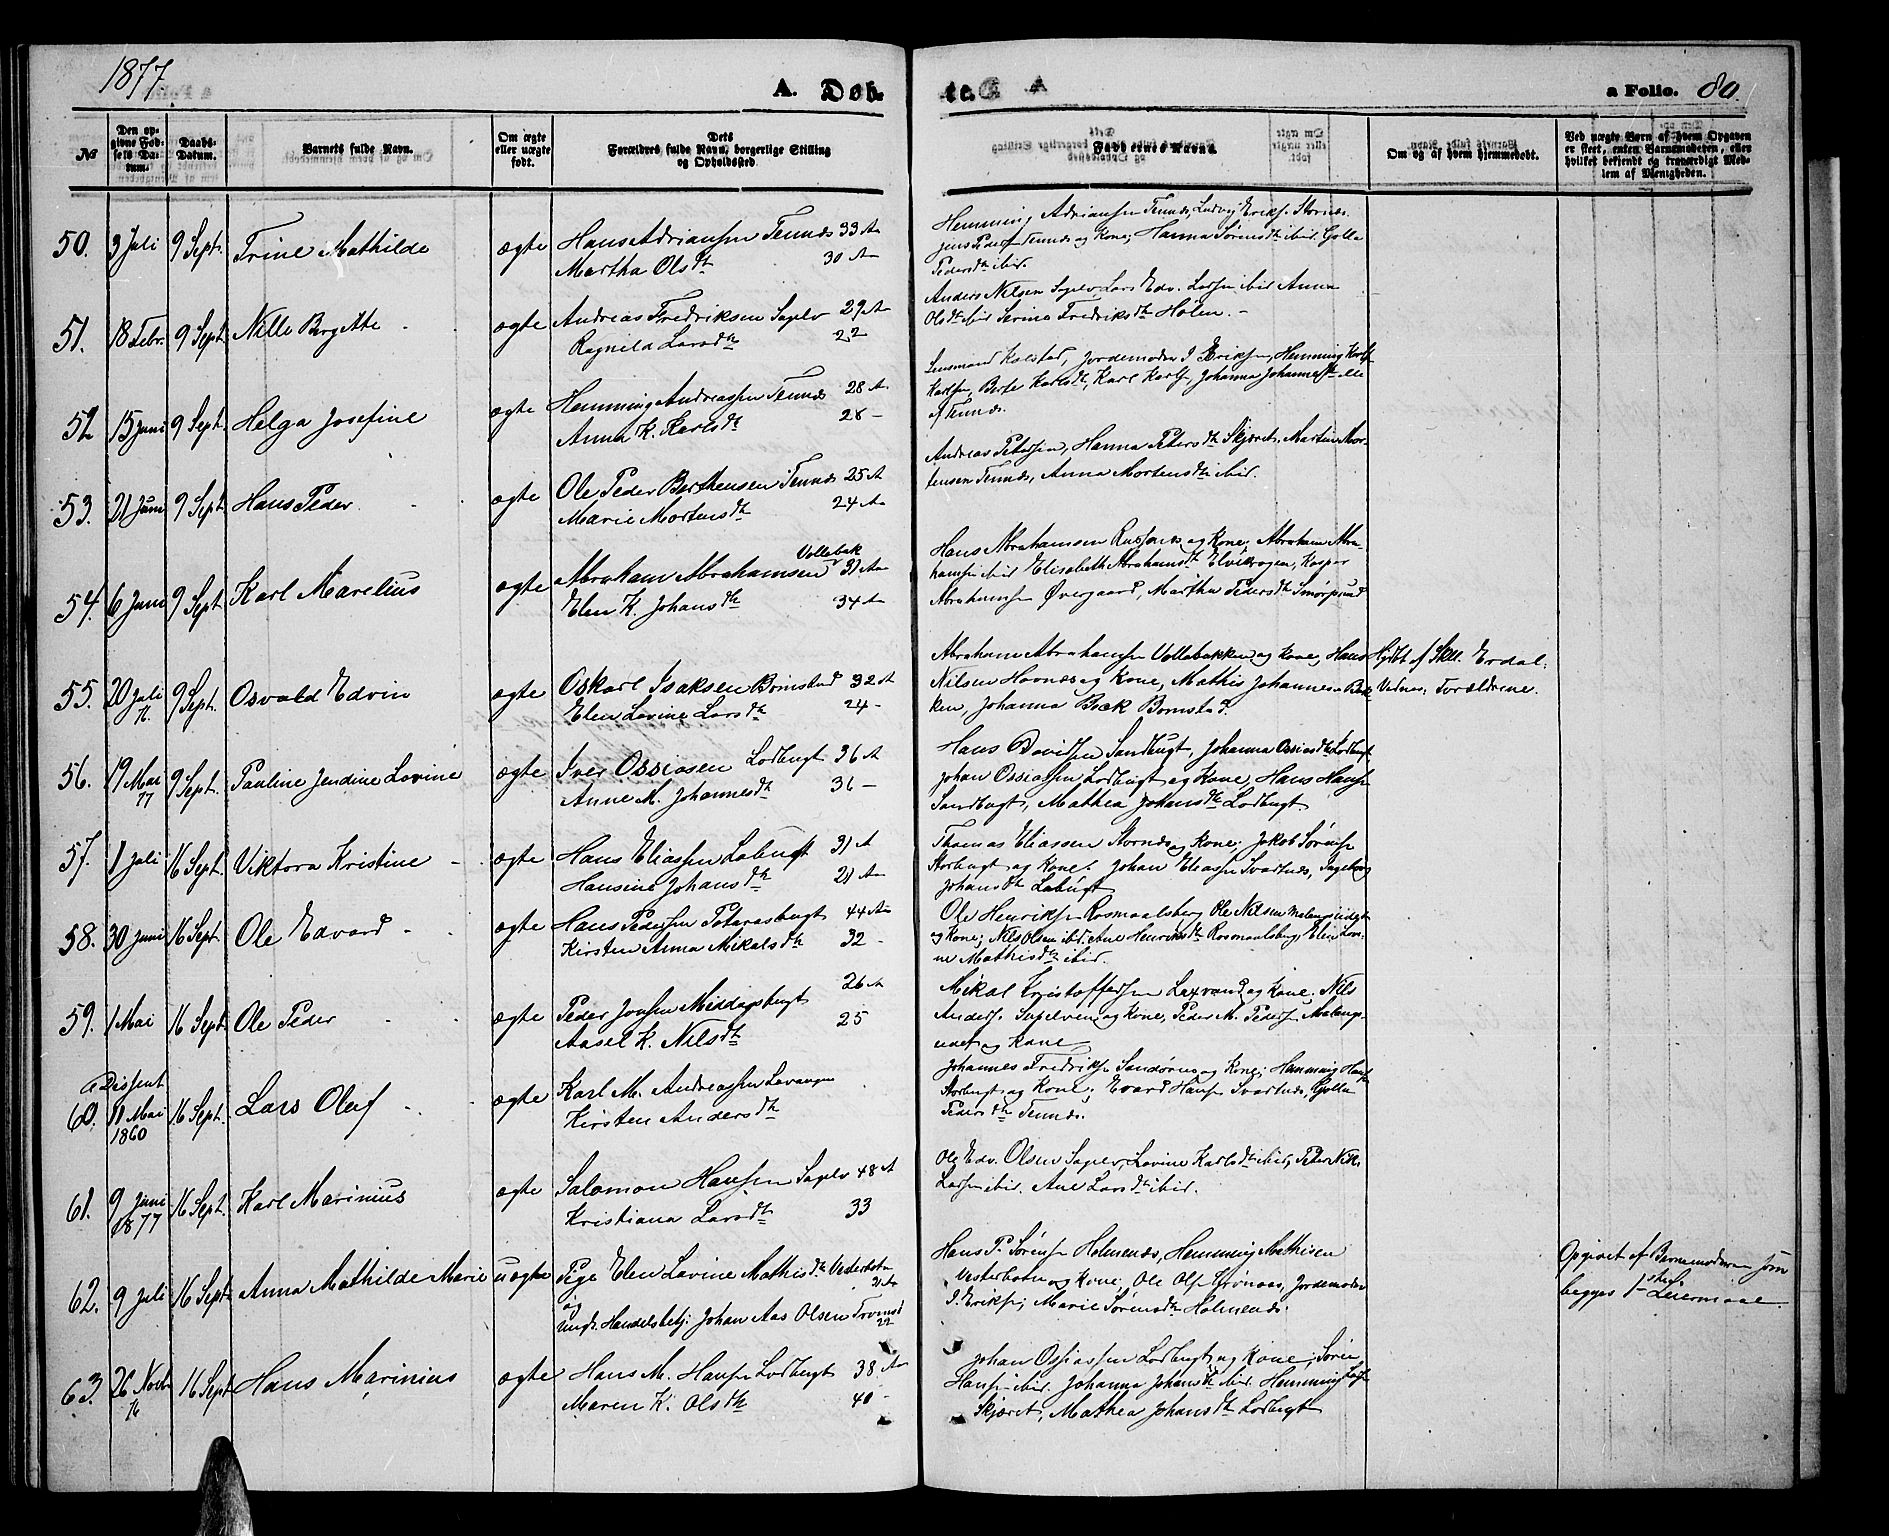 1877.
A. Døb-
te.
a Folio. 80.
№
Den op-
givne Fød-
sels Da-
tum.
Daabs-
Datum.
Barnets fulde Navn.
Om ægte
eller uægte
født.
Dets
Forældres fulde Navn, borgerlige Stilling
og Opholdssted
Faddernes Navne
Om og af hvem hjemmedøbt.
Ved uægte Børn af hvem Opgaven
er skeet, enten Barnemoderen, eller
hvilket bekjendt og troværdigt Med-
lem af Menigheden.
50. 3 Juli 9 Sept. Trine Mathilde ægte Hans Adriansen Tennes 33 A
Martha Olsdtr 30 A
Hemming Adriansen Tennes, Ludvig Eriks. Stornes
Jens Peders. Tennes og Kone, Hanna Sørensdtr ibid. Golla
Pedersdtr ibid.
51. 18 Febr. 9 Sept. Nille Bergitte ægte Andreas Fredriksen Sagelv 29 A
Ragnild Larsdtr 22
Anders Nilsen Sagelv, Lars Edv. Larsen ibid Anna
Olsdtr ibid Serina Fredriksdtr Holen.
52 15 Juni 9 Sept. Helga Josefine ægte Hemming Andreassen Tennes 28 A
Anna K. Karlsdtr 28 –
Lensmand Kolstad, Jordemoder I Eriksen, Hemming Karls.
Karlsen, Berte Karlsdtr, Karl Karls. Johanna Johannesdtr alle
af Tennes.
53. 21 Juni 9 Sept Hans Peder ægte Ole Peder Berthensen Tennes 25 A
Marie Mortensdtr 24 A
Andreas Petersen, Hanna Petersdtr Skjæret, Martin Mor-
tensen Tennes, Anna Mortensdtr ibid.
54. 6 Juni 9 Sept Karl Marelius ægte Abraham Abrahamsen Vollabak 31 A
Elen K. Johansdtr 34 A
Hans Abrahamsen Russenes og Kone, Abraham Abra-
hamsen ibid Elisabeth Abrahamsdtr Elvekrogen, Kaspar
Abrahamsen Øvergaard, Martha Pedersdtr Smørsund
55. 20 Juli 76 9 Sept. Osvald Edvin ægte Oskarl Isaksen Bomstad 32 A
Elen Lovine Larsdtr 24 –
Abraham Abrahamsen Vollabakken og Kone, Hans
Nilsen Havnes og Kone, Mathis Johannesen Bak-
ken, Johanna Bæk Bomstad.
Hjdbt af Skll. Erdal.
Vidner: Forældrene.
56. 19 Mai 77 9 Sept. Pauline Jendine Lovine ægte Iver Ossiasen Lodbugt 36 A
Anne M. Johannesdtr 36 –
Hans Davidsen Sandbugt, Johanna Ossiasdtr Lodbugt
Johan Ossiassen Lodbugt og Kone, Hans Hansen
Sandbugt, Mathea Johansdtr Lodbugt.
57. 1 Juli 16 Sept. Viktora Kristine ægte Hans Eliassen Labugt 31 A
Hansine Johansdtr 21 A
Thomas Eliassen Stornes og Kone, Jakob Sørens.
Storbugt og Kone. Johan Eliassen Svartnes, Ingeborg
Johansdtr Labugt
58. 30 Juni 16 Sept. Ole Edvard ægte Hans Pedersen Potarasbugt 44 A
Kirsten Anna Mikalsdtr 32 –
Ole Henriksen Rosmaalsberg Ole Nilsen Malangseidet
og Kone, Nils Olsen ibid. Ane Henriksdtr Rosmaalsberg, Elen Lovi-
ne Mathisdtr ibid.
59. 1 Mai 16 Sept. Ole Peder ægte Peder Jonsen Middagsbugt 26 A
Aasel K. Nilsdtr 25
Mikal Kristoffersen Laxvand og Kone. Nils
Anders. Sagelven og Kone, Peder M. Peders. Malangs-
eidet og Kone
60. Dissent 11 Mai 1860 16 Sept. Lars Oluf ægte Karl M. Andreassen Lavangen
Kirsten Andersdtr
Johannes Fredriksen Sandøren og Kone, Hemming Hansen
Storbugt og Kone, Evard Hansen Svartnes, Golla
Pedersdtr Tennes.
61. 9 Juni 1877 16 Sept. Karl Marinius ægte Salomon Hansen Sagelv 48 A
Kristiana Larsdtr 33
Ole Edv. Olsen Sagelv, Lovine Karlsdtr ibid, Peder Nik.
Larsen ibid. Ane Larsdtr ibid.
62. 9 Juli 16 Sept. Anna Mathilde Marie uægte Pige Elen Lovine Mathisdtr Vesterbotn
21 A
og
Ungk. Handelsbetj. Johan Aas Olsen Tromsø
22
Hans P. Sørens. Holmenes, Hemming Mathisen
Vesterbotn og Kone, Ole Ols. Strønaas, Jordemoder
I. Eriksen, Marie Sørensdtr Holmenes.
Opgivet af Barnemoderen som
begges 1ste Leiermaal.
63. 26 Novb 76 16 Sept Hans Marinius ægte Hans M. Hansen Lodbugt 38 A
Maren K. Olsdtr 40 –
Johan Ossiassen Lodbugt og Kone, Søren
Hansen ibid. Johanna Johansdtr ibid. Hemming Lars.
Skjæret, Mathea Johansdtr Lodbugt